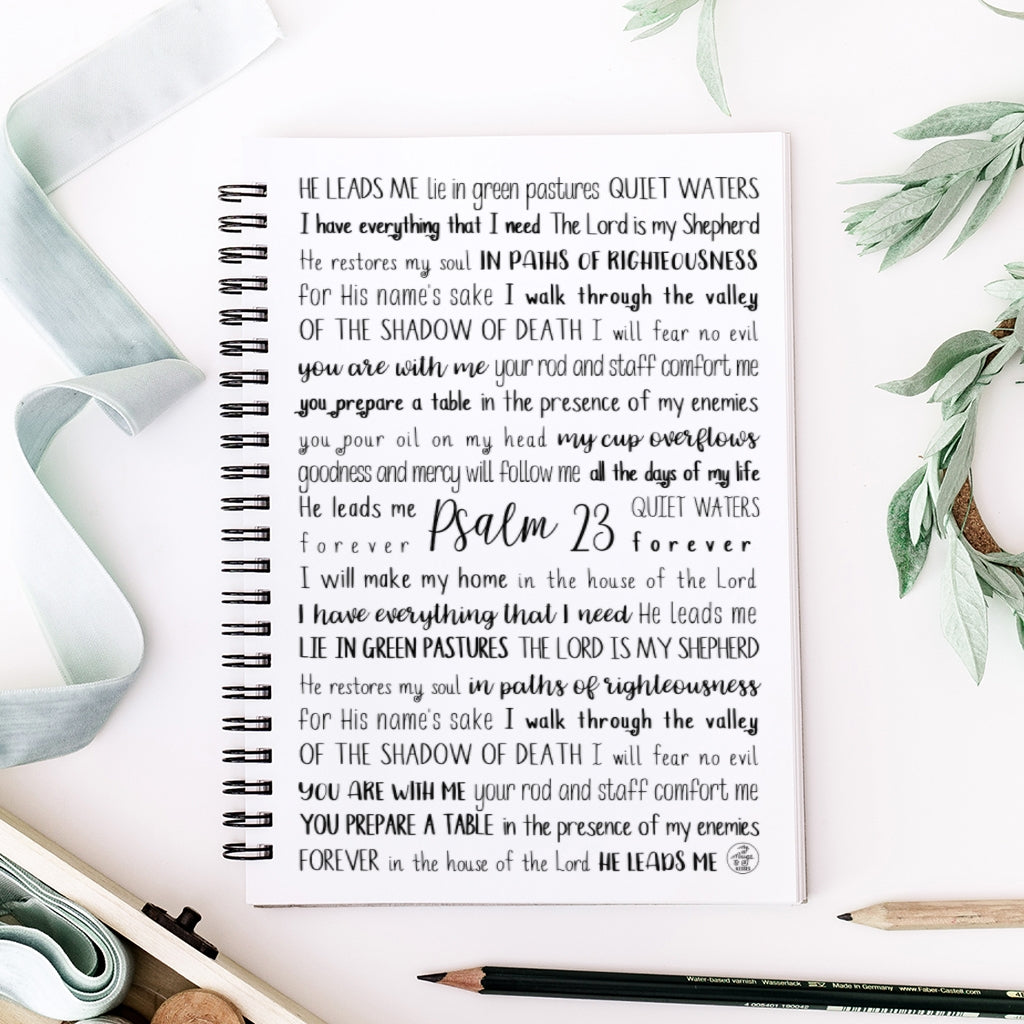 HE LEADS ME lie in green pastures QUIET WATERS
I have everything that I need The Lord is my Shepherd
He restores my soul IN PATHS OF RIGHTEOUSNESS
for His name's sake I walk through the valley
OF THE SHADOW OF DEATH I will fear no evil
you are with me your rod and staff comfort me
you prepare a table in the presence of my enemies
you pour oil on my head my cup overflows
goodness and mercy will follow me all the days of my life
He leads me Psalm 23 QUIET WATERS
forever forever
I will make my home in the house of the Lord
I have everything that I need He leads me
LIE IN GREEN PASTURES THE LORD IS MY SHEPHERD
He restores my soul in paths of righteousness
for His name's sake I walk through the valley
OF THE SHADOW OF DEATH I will fear no evil
YOU ARE WITH ME your rod and staff comfort me
YOU PREPARE A TABLE in the presence of my enemies
FOREVER in the house of the Lord HE LEADS ME
Water-based varnish Wasserlack Made in Germany www.Faber-Castell.com
4 005401 190042